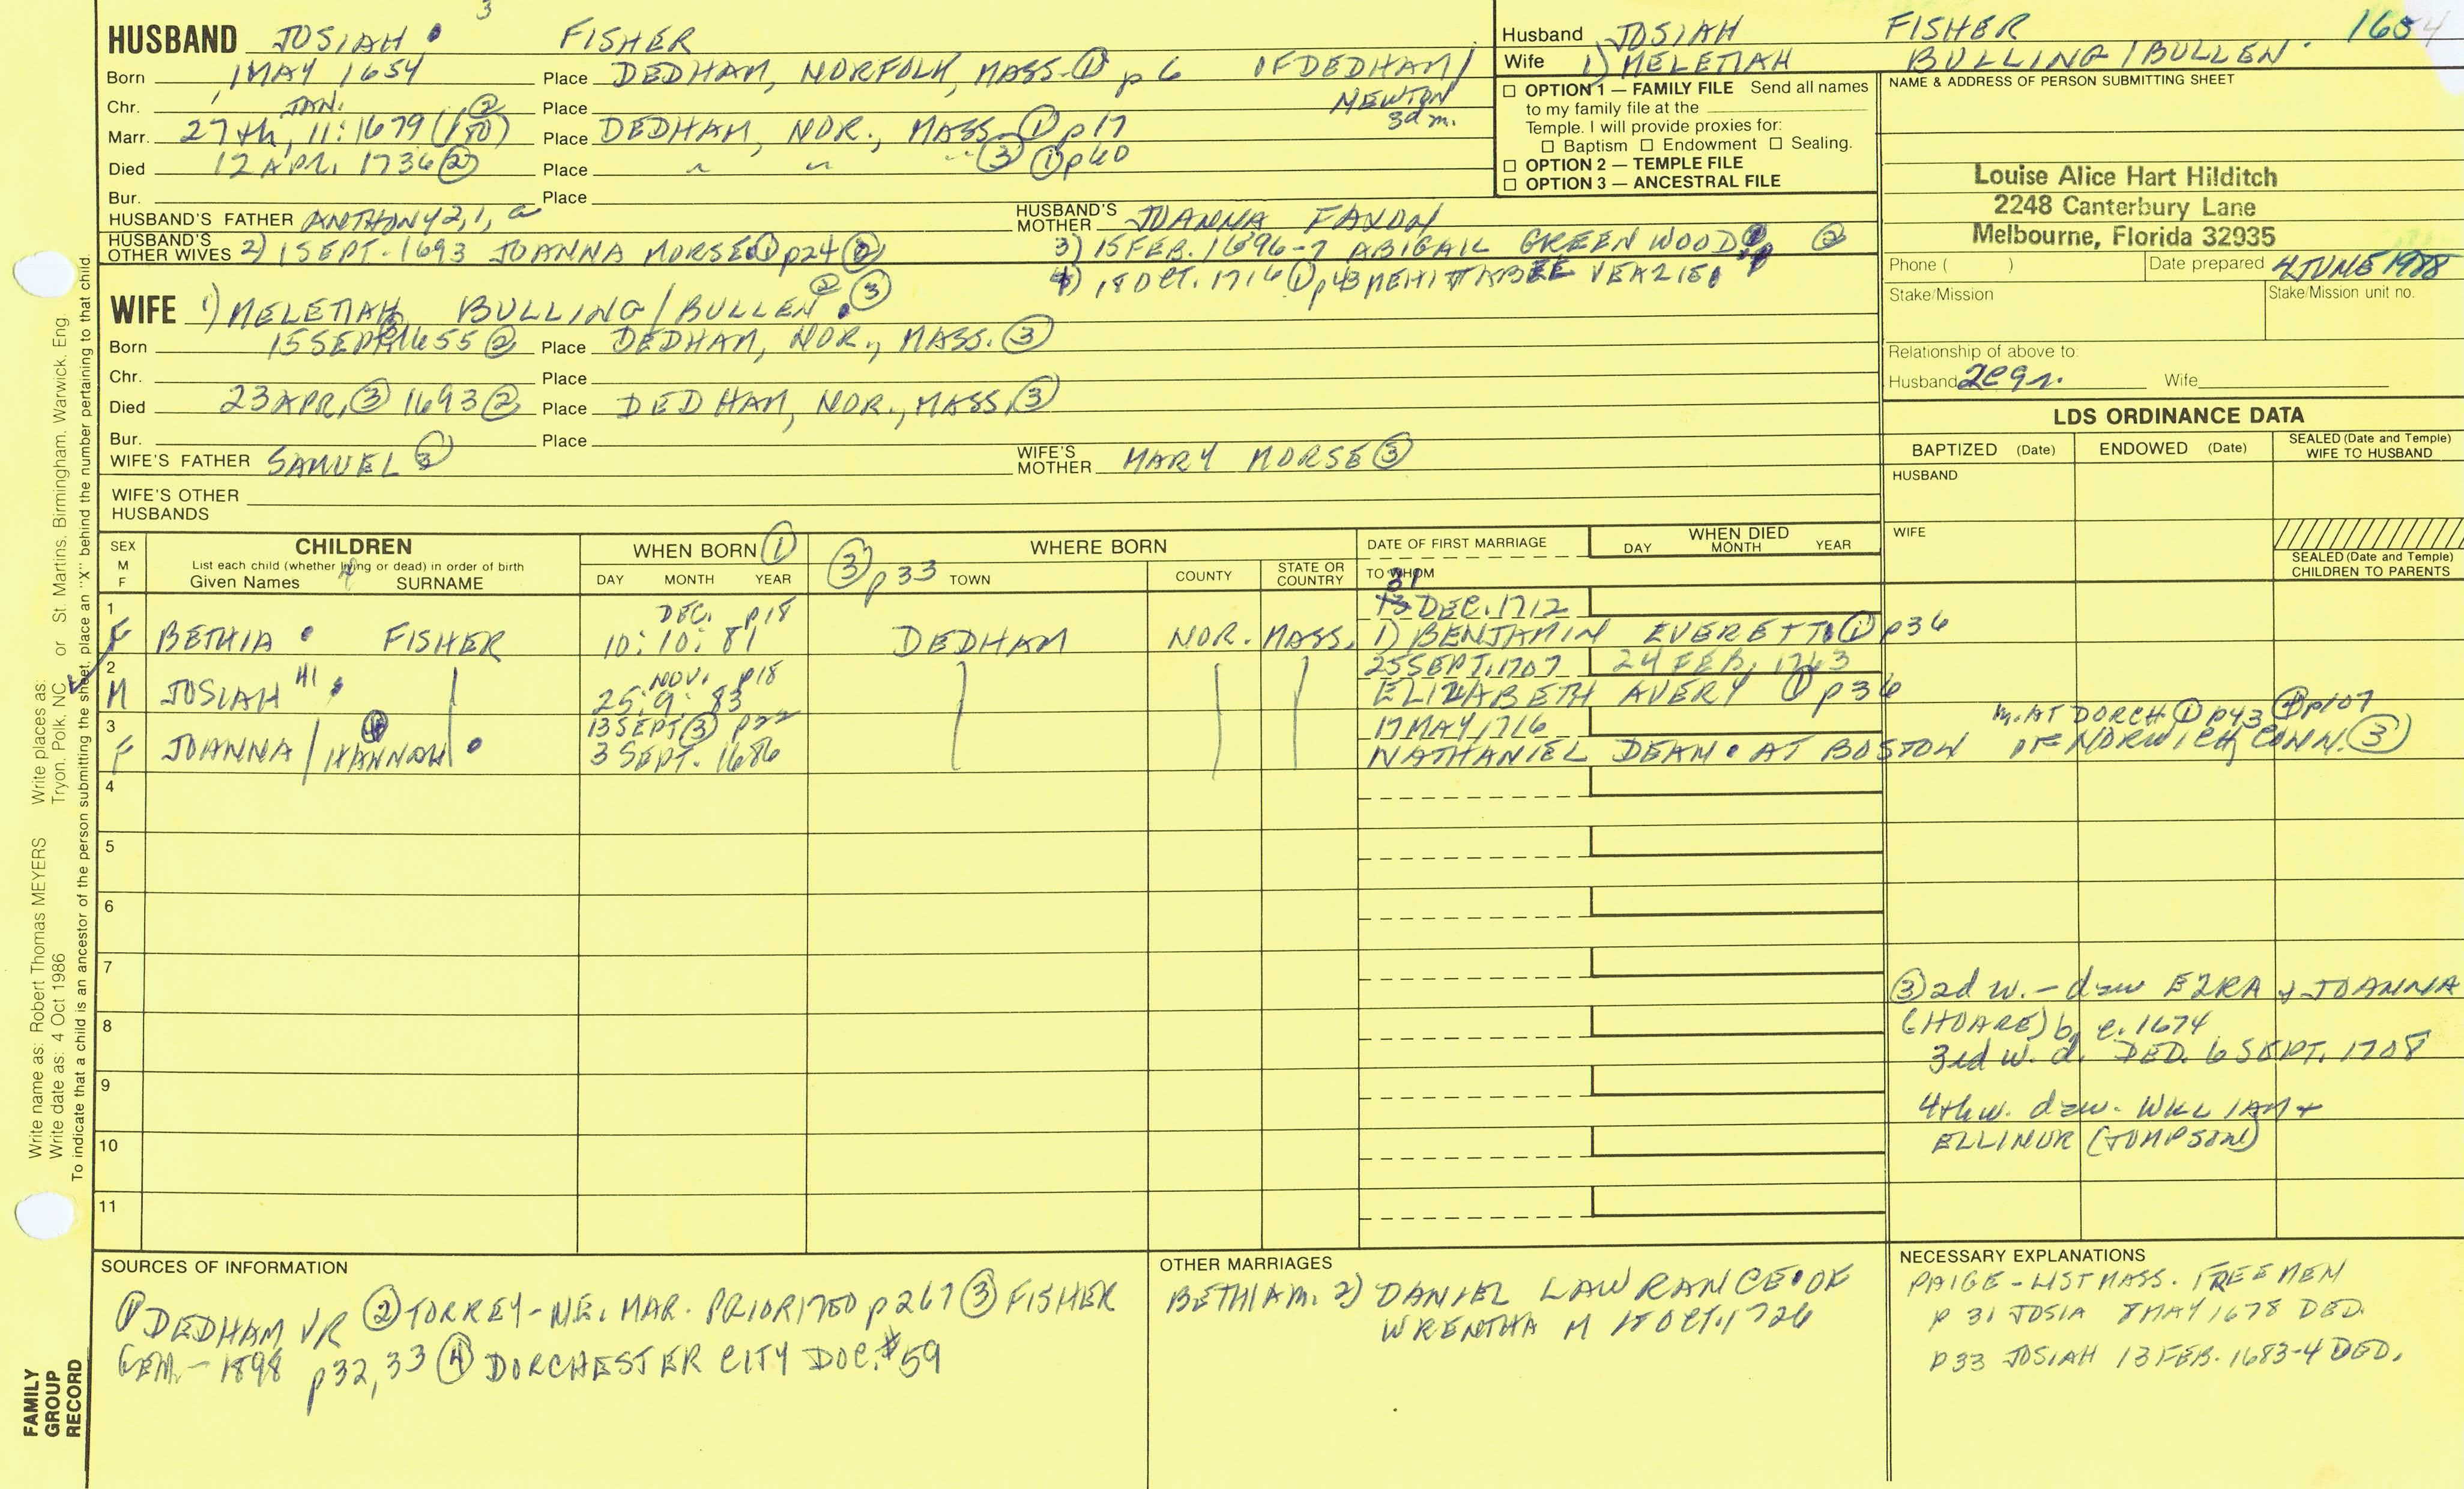 3
HUSBAND JOSIAH FISHER
Born 1 MAY 1654 Place DEDHAM, NORFOLK, MASS. ① p 6 OF DEDHAM/
Chr. JAN. ② Place NEWTON
3d m.
Marr. 27th, 11:1679 (180) Place DEDHAM, NOR., MASS. ① p17
Died 12 APR. 1736 ② Place " " " ③ ① p40
Bur. Place
HUSBAND'S FATHER ANTHONY 2, 1, a HUSBAND'S MOTHER JOANNA FAXON
HUSBAND'S OTHER WIVES 2) 1 SEPT. 1693 JOANNA MORSE ① p24 ② 3) 15 FEB. 1696-7 ABIGAIL GREENWOOD ②
4) 18 OCT. 1716 ① p43 MEHITTABEE
WIFE 1) MELETIAH BULLING/BULLEN ② ③
Born 15 SEPT 1655 ② Place DEDHAM, NOR., MASS. ③
Chr. Place
Died 23 APR. ③ 1693 ② Place DEDHAM, NOR., MASS. ③
Bur. Place
WIFE'S FATHER SAMUEL ③ WIFE'S MOTHER MARY MORSE ③
WIFE'S OTHER HUSBANDS
Husband JOSIAH FISHER 1654
Wife 1) MELETIAH BULLING/BULLEN
☐ OPTION 1 — FAMILY FILE Send all names
to my family file at the
Temple. I will provide proxies for:
☐ Baptism ☐ Endowment ☐ Sealing.
☐ OPTION 2 — TEMPLE FILE
☐ OPTION 3 — ANCESTRAL FILE
NAME & ADDRESS OF PERSON SUBMITTING SHEET
Louise Alice Hart Hilditch
2248 Canterbury Lane
Melbourne, Florida 32935
Phone ( ) Date prepared 4 JUNE 1988
Stake/Mission Stake/Mission unit no.
Relationship of above to:
Husband 2c9r. Wife
LDS ORDINANCE DATA
BAPTIZED (Date) ENDOWED (Date) SEALED (Date and Temple) WIFE TO HUSBAND
HUSBAND
WIFE
SEALED (Date and Temple) CHILDREN TO PARENTS
SEX M F
CHILDREN
List each child (whether living or dead) in order of birth
Given Names SURNAME
WHEN BORN ①
DAY MONTH YEAR
③ p33 WHERE BORN
TOWN COUNTY STATE OR COUNTRY
DATE OF FIRST MARRIAGE
TO WHOM
WHEN DIED
DAY MONTH YEAR
1 DEC. p18 31 DEC. 1712
F BETHIA FISHER 10: 10: 81 DEDHAM NOR. MASS. 1) BENJAMIN EVERETT ① p36
2 NOV. p18 25 SEPT. 1707 24 FEB. 1763
M JOSIAH 41 25: 9: 83 ELIZABETH AVERY ① p36
3 13 SEPT ③ p22 17 MAY 1716 m. AT DORCH ① p43 ④ p107
F JOANNA/HANNAH 3 SEPT. 1686 NATHANIEL DEAN AT BOSTON OF NORWICH CONN. ③
4
5
6
7
8
9
10
11
③ 2d w. — daw EZRA & JOANNA
(HOARE) b. c. 1674
3rd w. d. DED. 6 SEPT. 1708
4th w. daw. WILLIAM +
ELLINOR (TOMPSON)
SOURCES OF INFORMATION
① DEDHAM VR ② TORREY-N.E. MAR. PRIOR 1750 p267 ③ FISHER
GEN.-1898 p32,33 ④ DORCHESTER CITY DOC. #59
OTHER MARRIAGES
BETHIA m. 2) DANIEL LAWRANCE OF
WRENTHAM 18 OCT. 1726
NECESSARY EXPLANATIONS
PAIGE-LIST MASS. FREEMEN
p 31 JOSIA 8 MAY 1678 DED.
p33 JOSIAH 13 FEB. 1683-4 DED.
Write name as: Robert Thomas MEYERS Write places as: Tryon, Polk, NC or St. Martins, Birmingham, Warwick, Eng.
Write date as: 4 Oct 1986
To indicate that a child is an ancestor of the person submitting the sheet, place an "X" behind the number pertaining to that child.
FAMILY
GROUP
RECORD